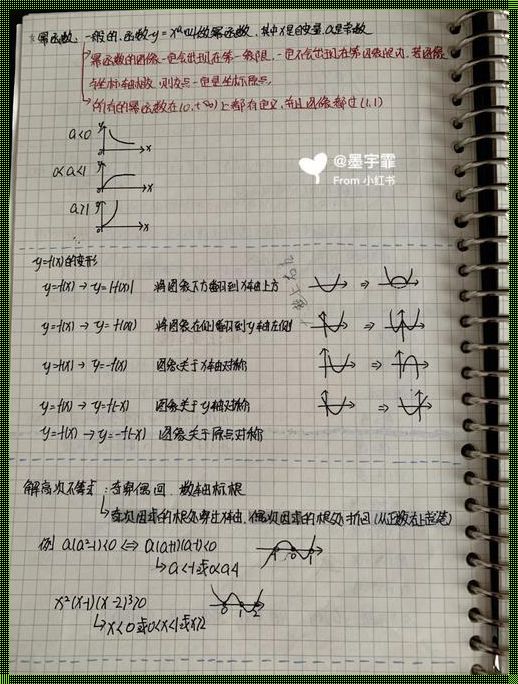 幂函数：一般的，函数y=xᵅ叫做幂函数，其中x是自变量，α是常数
幂函数的图像一定会出现在第一象限，一定不会出现在第四象限内，若图像
与坐标轴相交，则交点一定是坐标原点
所有的幂函数在(0,+∞)上都有定义，并且图像都过(1,1)
a<0 y 0 x
0<a<1 y 0 x
a>1 y 0 x
@墨宇霏
From 小红书
y=f(x)的变形
y=f(x)→y=|f(x)| 将图象下方翻到x轴上方 ⇒
y=f(x)→y=f(|x|) 将图象右侧翻到y轴左侧 ⇒
y=f(x)→y=-f(x) 图象关于x轴对称 ⇒
y=f(x)→y=f(-x) 图象关于y轴对称 ⇒
y=f(x)→y=-f(-x) 图象关于原点对称
解高次不等式：奇穿偶回 数轴标根
奇次因式的根处穿过x轴，偶次因式的根处折回(从正数右上起笔)
例 a(a²-1)<0⇔a(a+1)(a-1)<0 -1 0 1
a<-1或0<a<1
x²(x-1)(x-2)³>0 0 1 2
x<0或0<x<1或x>2